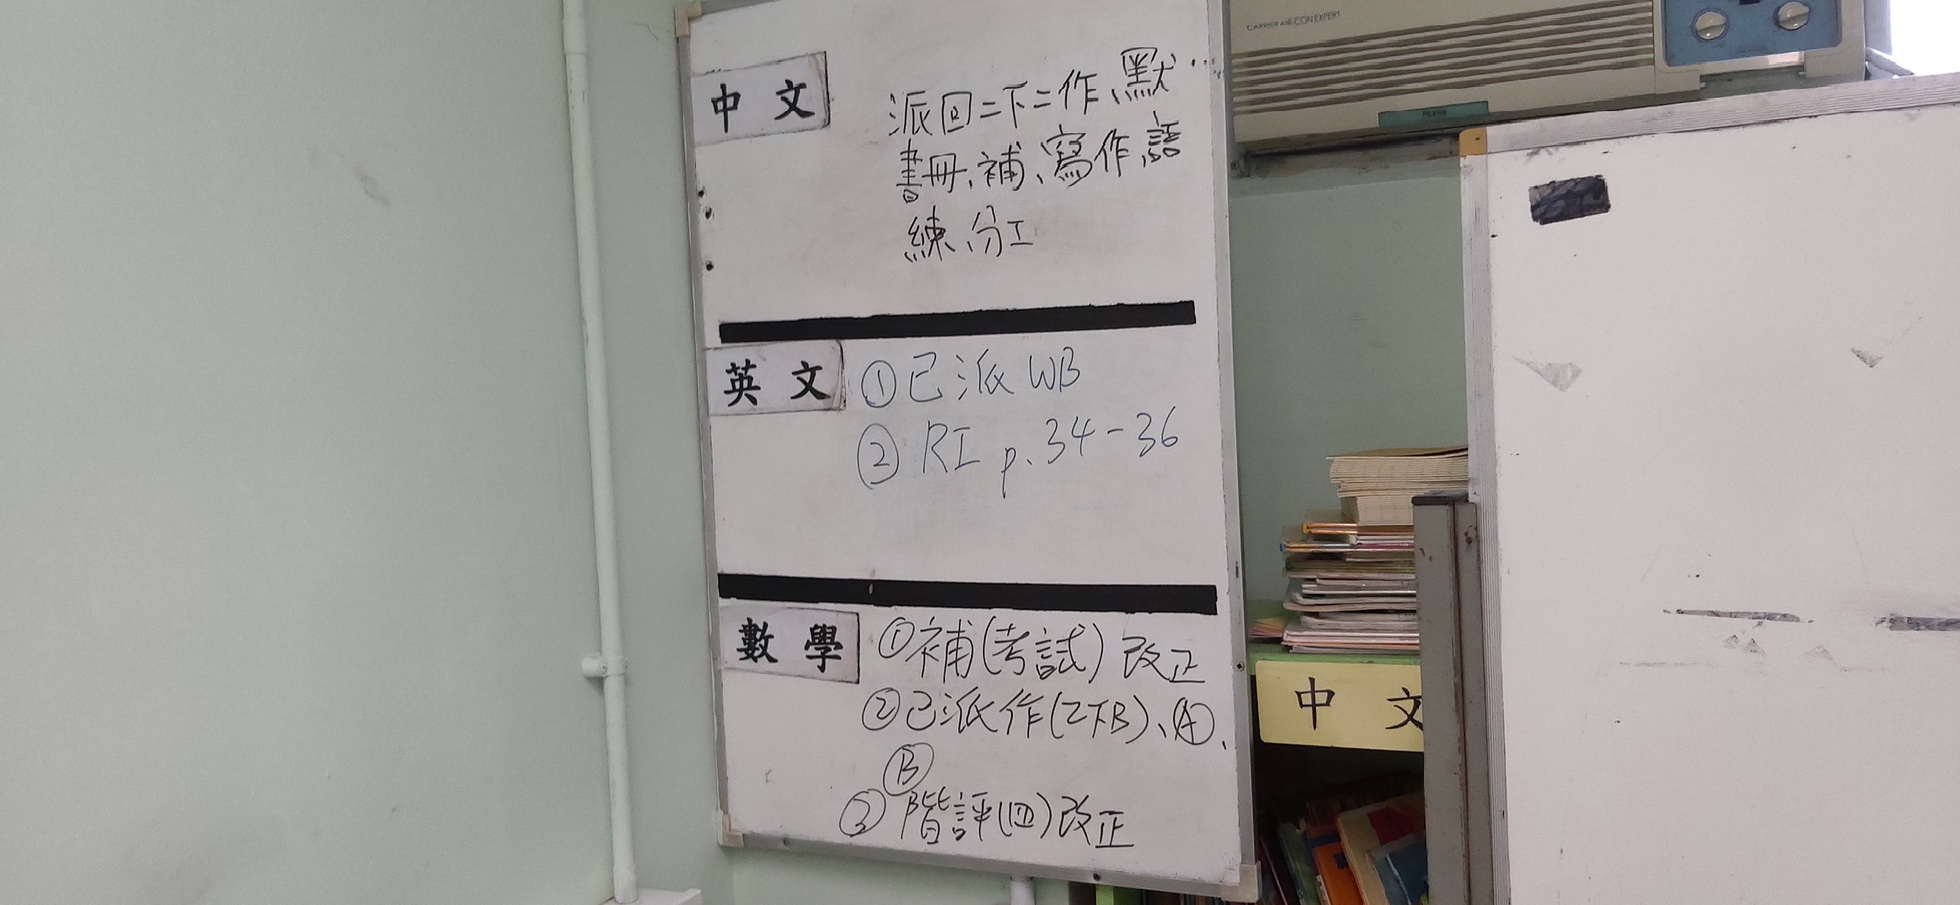 CARRIER AIR-CON EXPERT
中文
派回二下二作、默
書冊、補、寫作、語
練、分工
英文
①已派 WB
② RI p.34-36
數學
①補(考試)改正
②已派作(2下B)、Ⓐ、
Ⓑ
③階評(四)改正
中文